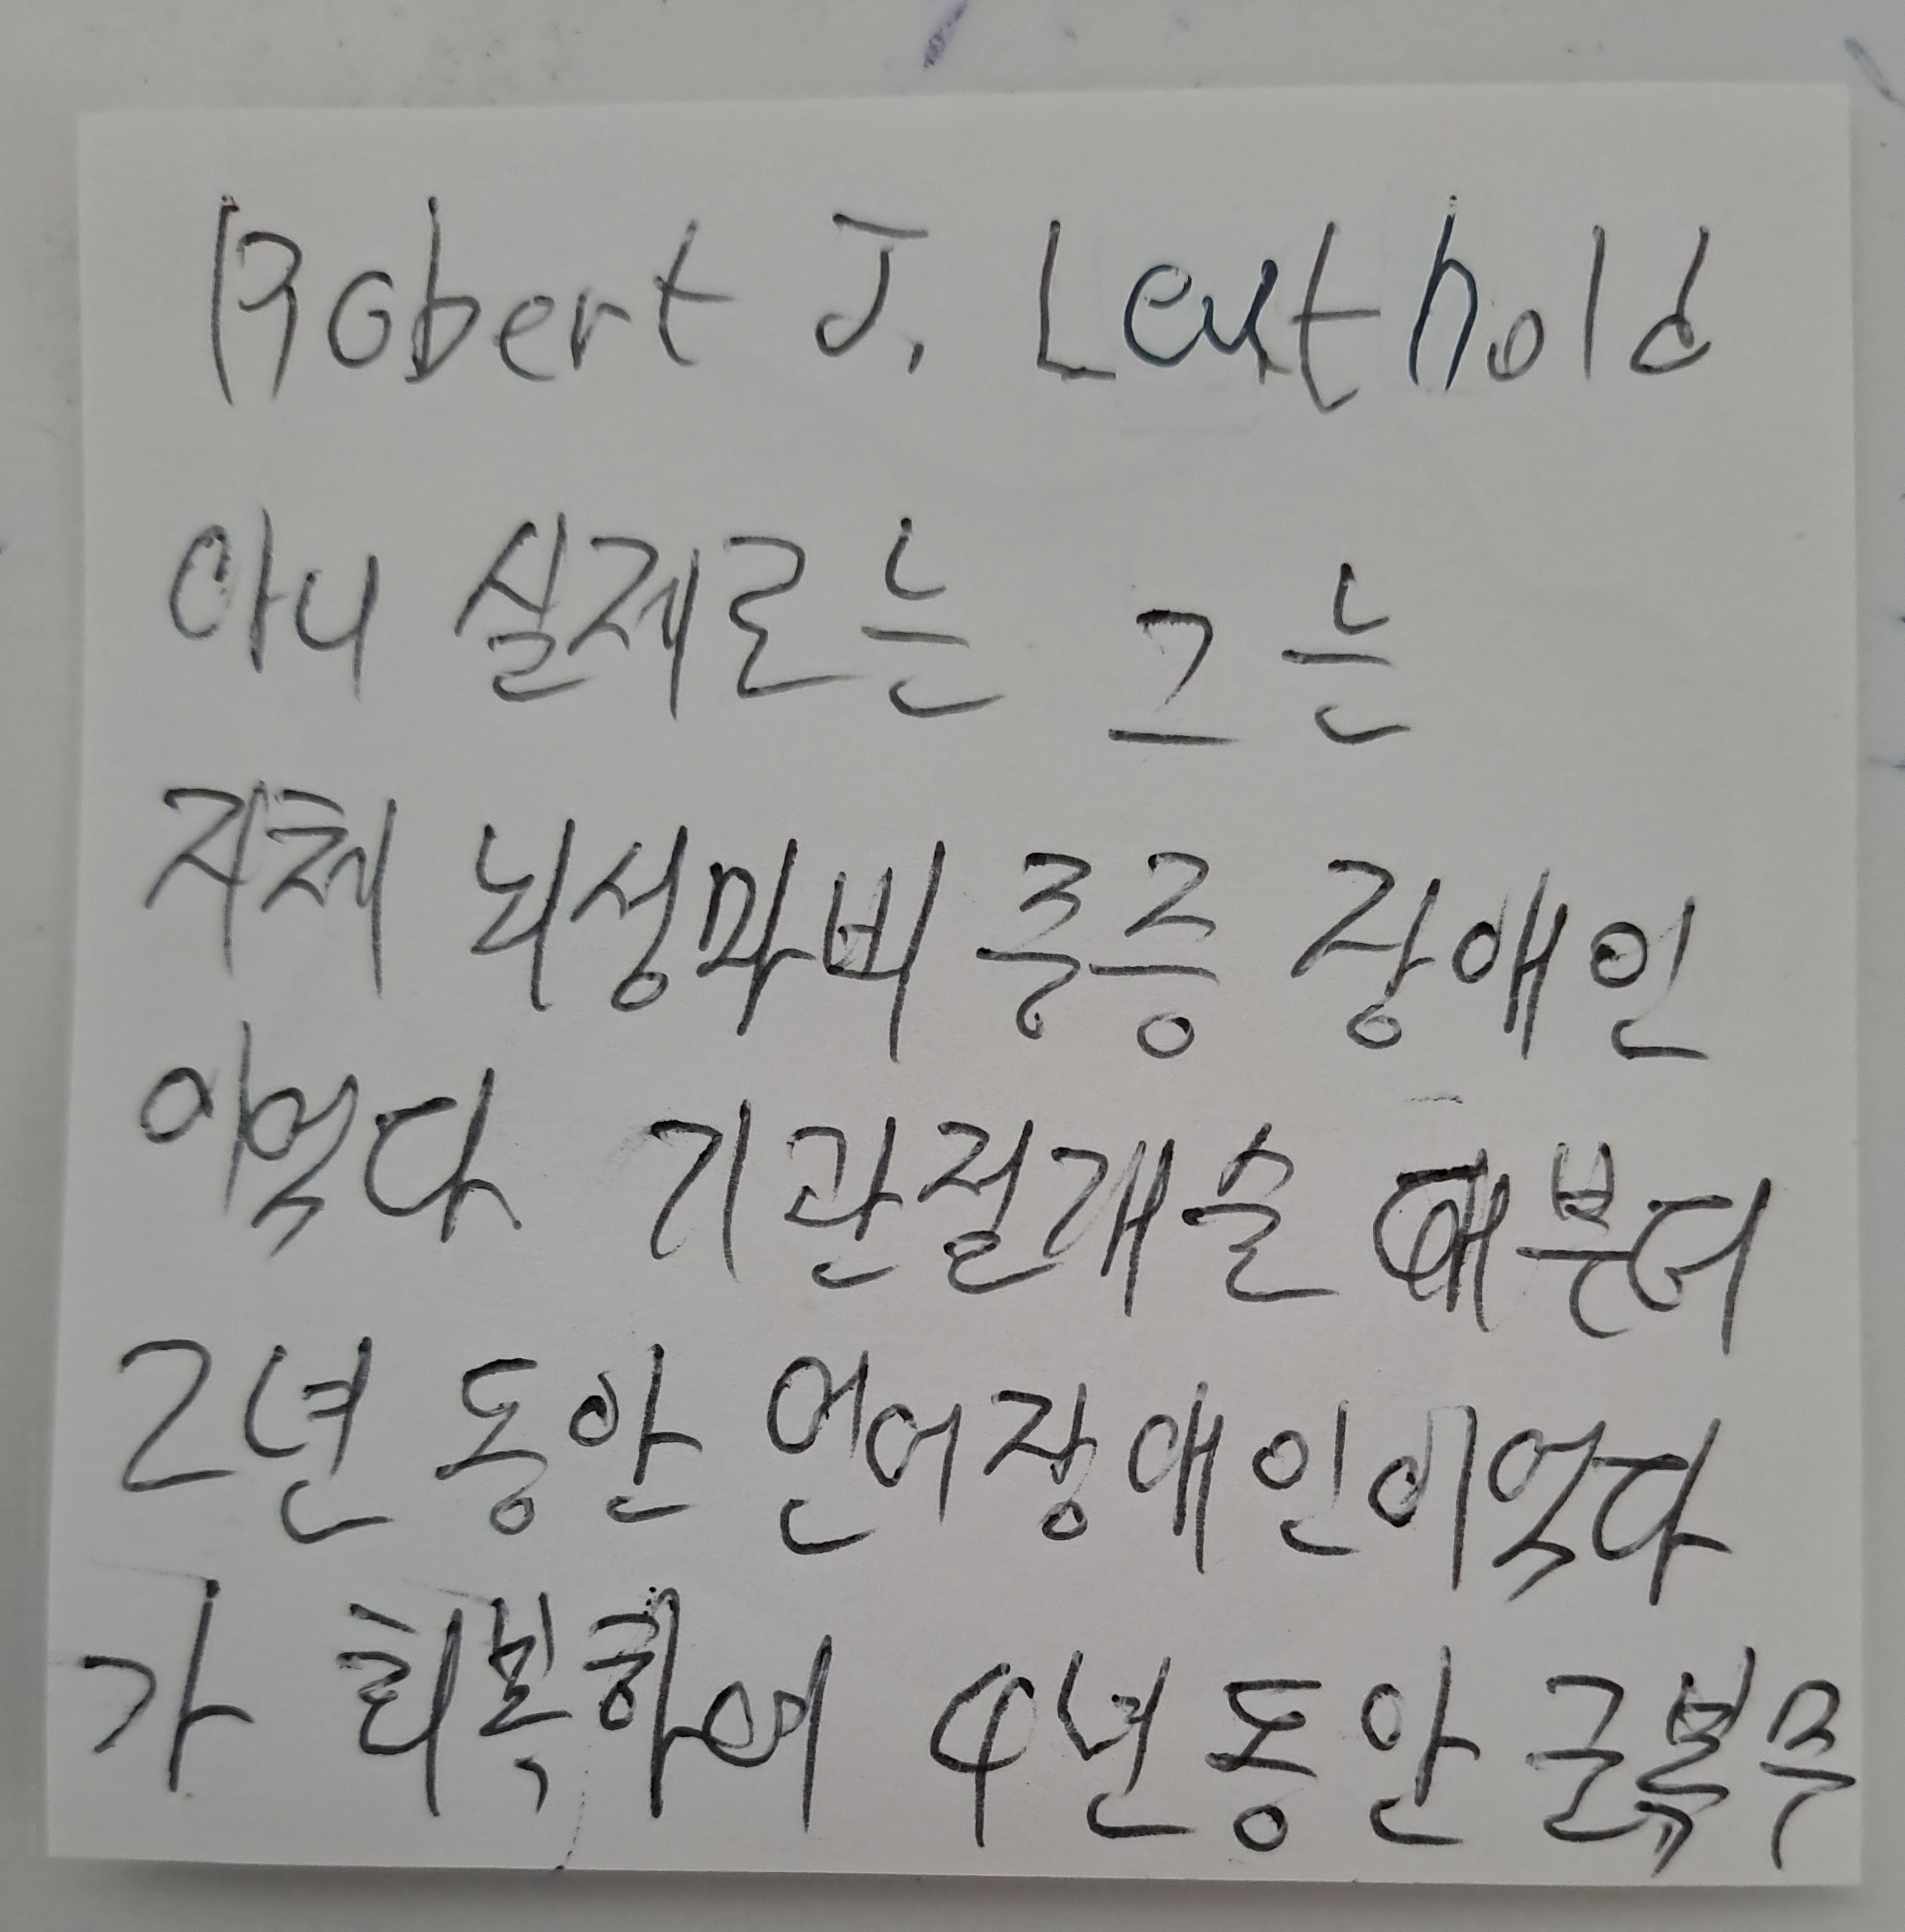 Robert J. Leuthold
아니 실제로는 그는
지체 뇌성마비 중증 장애인
이었다 기관절개술 때부터
2년 동안 언어장애인이었다
가 회복하여 4년 동안 군복무